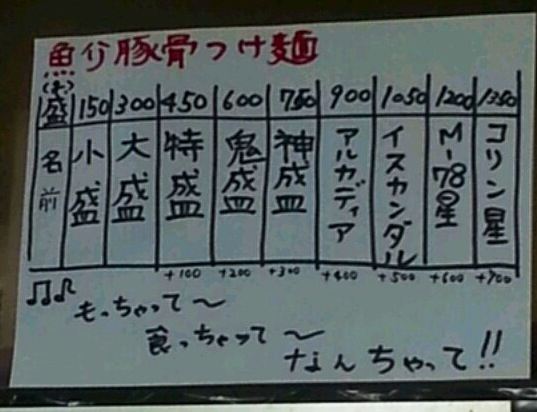 魚介豚骨つけ麺
盛(g) 150 300 450 600 750 900 1050 1200 1350
名前 小盛 大盛 特盛 鬼盛 神盛 アルカディア イスカンダル M-78星 コリン星
+100 +200 +300 +400 +500 +600 +700
もっちゃって〜
食っちゃって〜
なんちゃって!!